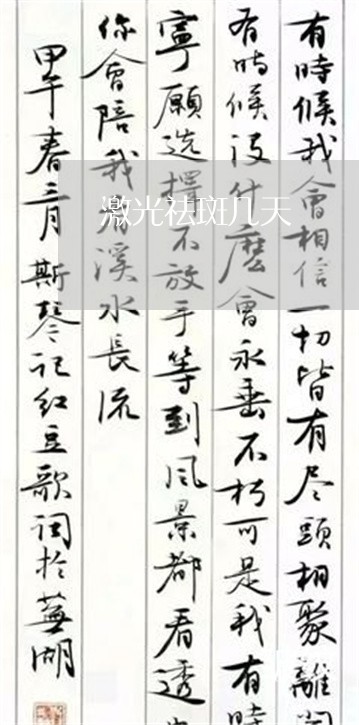 有時候我會相信一切皆有尽頭相聚離開
有時候没什麼會永垂不朽可是我有時
寧願选擇不放手等到風景都看透
你會陪我看溪水長流
甲午春三月斯琴记红豆歌词於蕪湖
激光祛斑几天